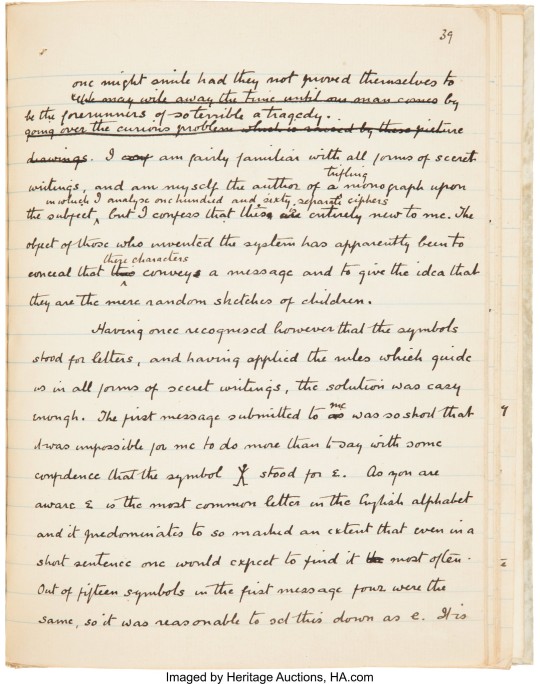 39
one might smile had they not proved themselves to
We may wile away the time until our man comes by
be the forerunners of so terrible a tragedy.
going over the curious problem which is raised by these picture
drawings. I am fairly familiar with all forms of secret
trifling
writings, and am myself the author of a monograph upon
in which I analyse one hundred and sixty separate ciphers
the subject, but I confess that this is entirely new to me. The
object of those who invented the system has apparently been to
these characters
conceal that this conveys a message and to give the idea that
they are the mere random sketches of children.
Having once recognised however that the symbols
stood for letters, and having applied the rules which guide
us in all forms of secret writings, the solution was easy
enough. The first message submitted to me was so short that
it was impossible for me to do more than to say with some
confidence that the symbol stood for E. As you are
aware E is the most common letter in the English alphabet
and it predominates to so marked an extent that even in a
short sentence one would expect to find it most often.
Out of fifteen symbols in the first message four were the
same, so it was reasonable to set this down as e. It is
Imaged by Heritage Auctions, HA.com